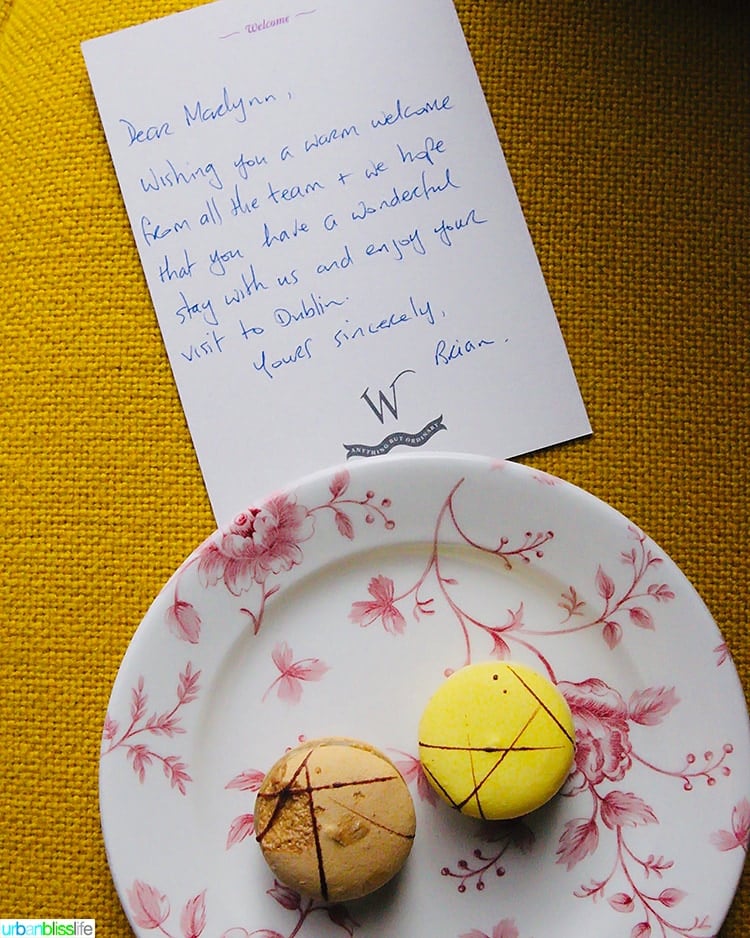 Welcome
Dear Marlynn,
Wishing you a warm welcome
from all the team + we hope
that you have a wonderful
stay with us and enjoy your
visit to Dublin.
Yours sincerely,
Brian.
W
ANYTHING BUT ORDINARY
urbanblisslife